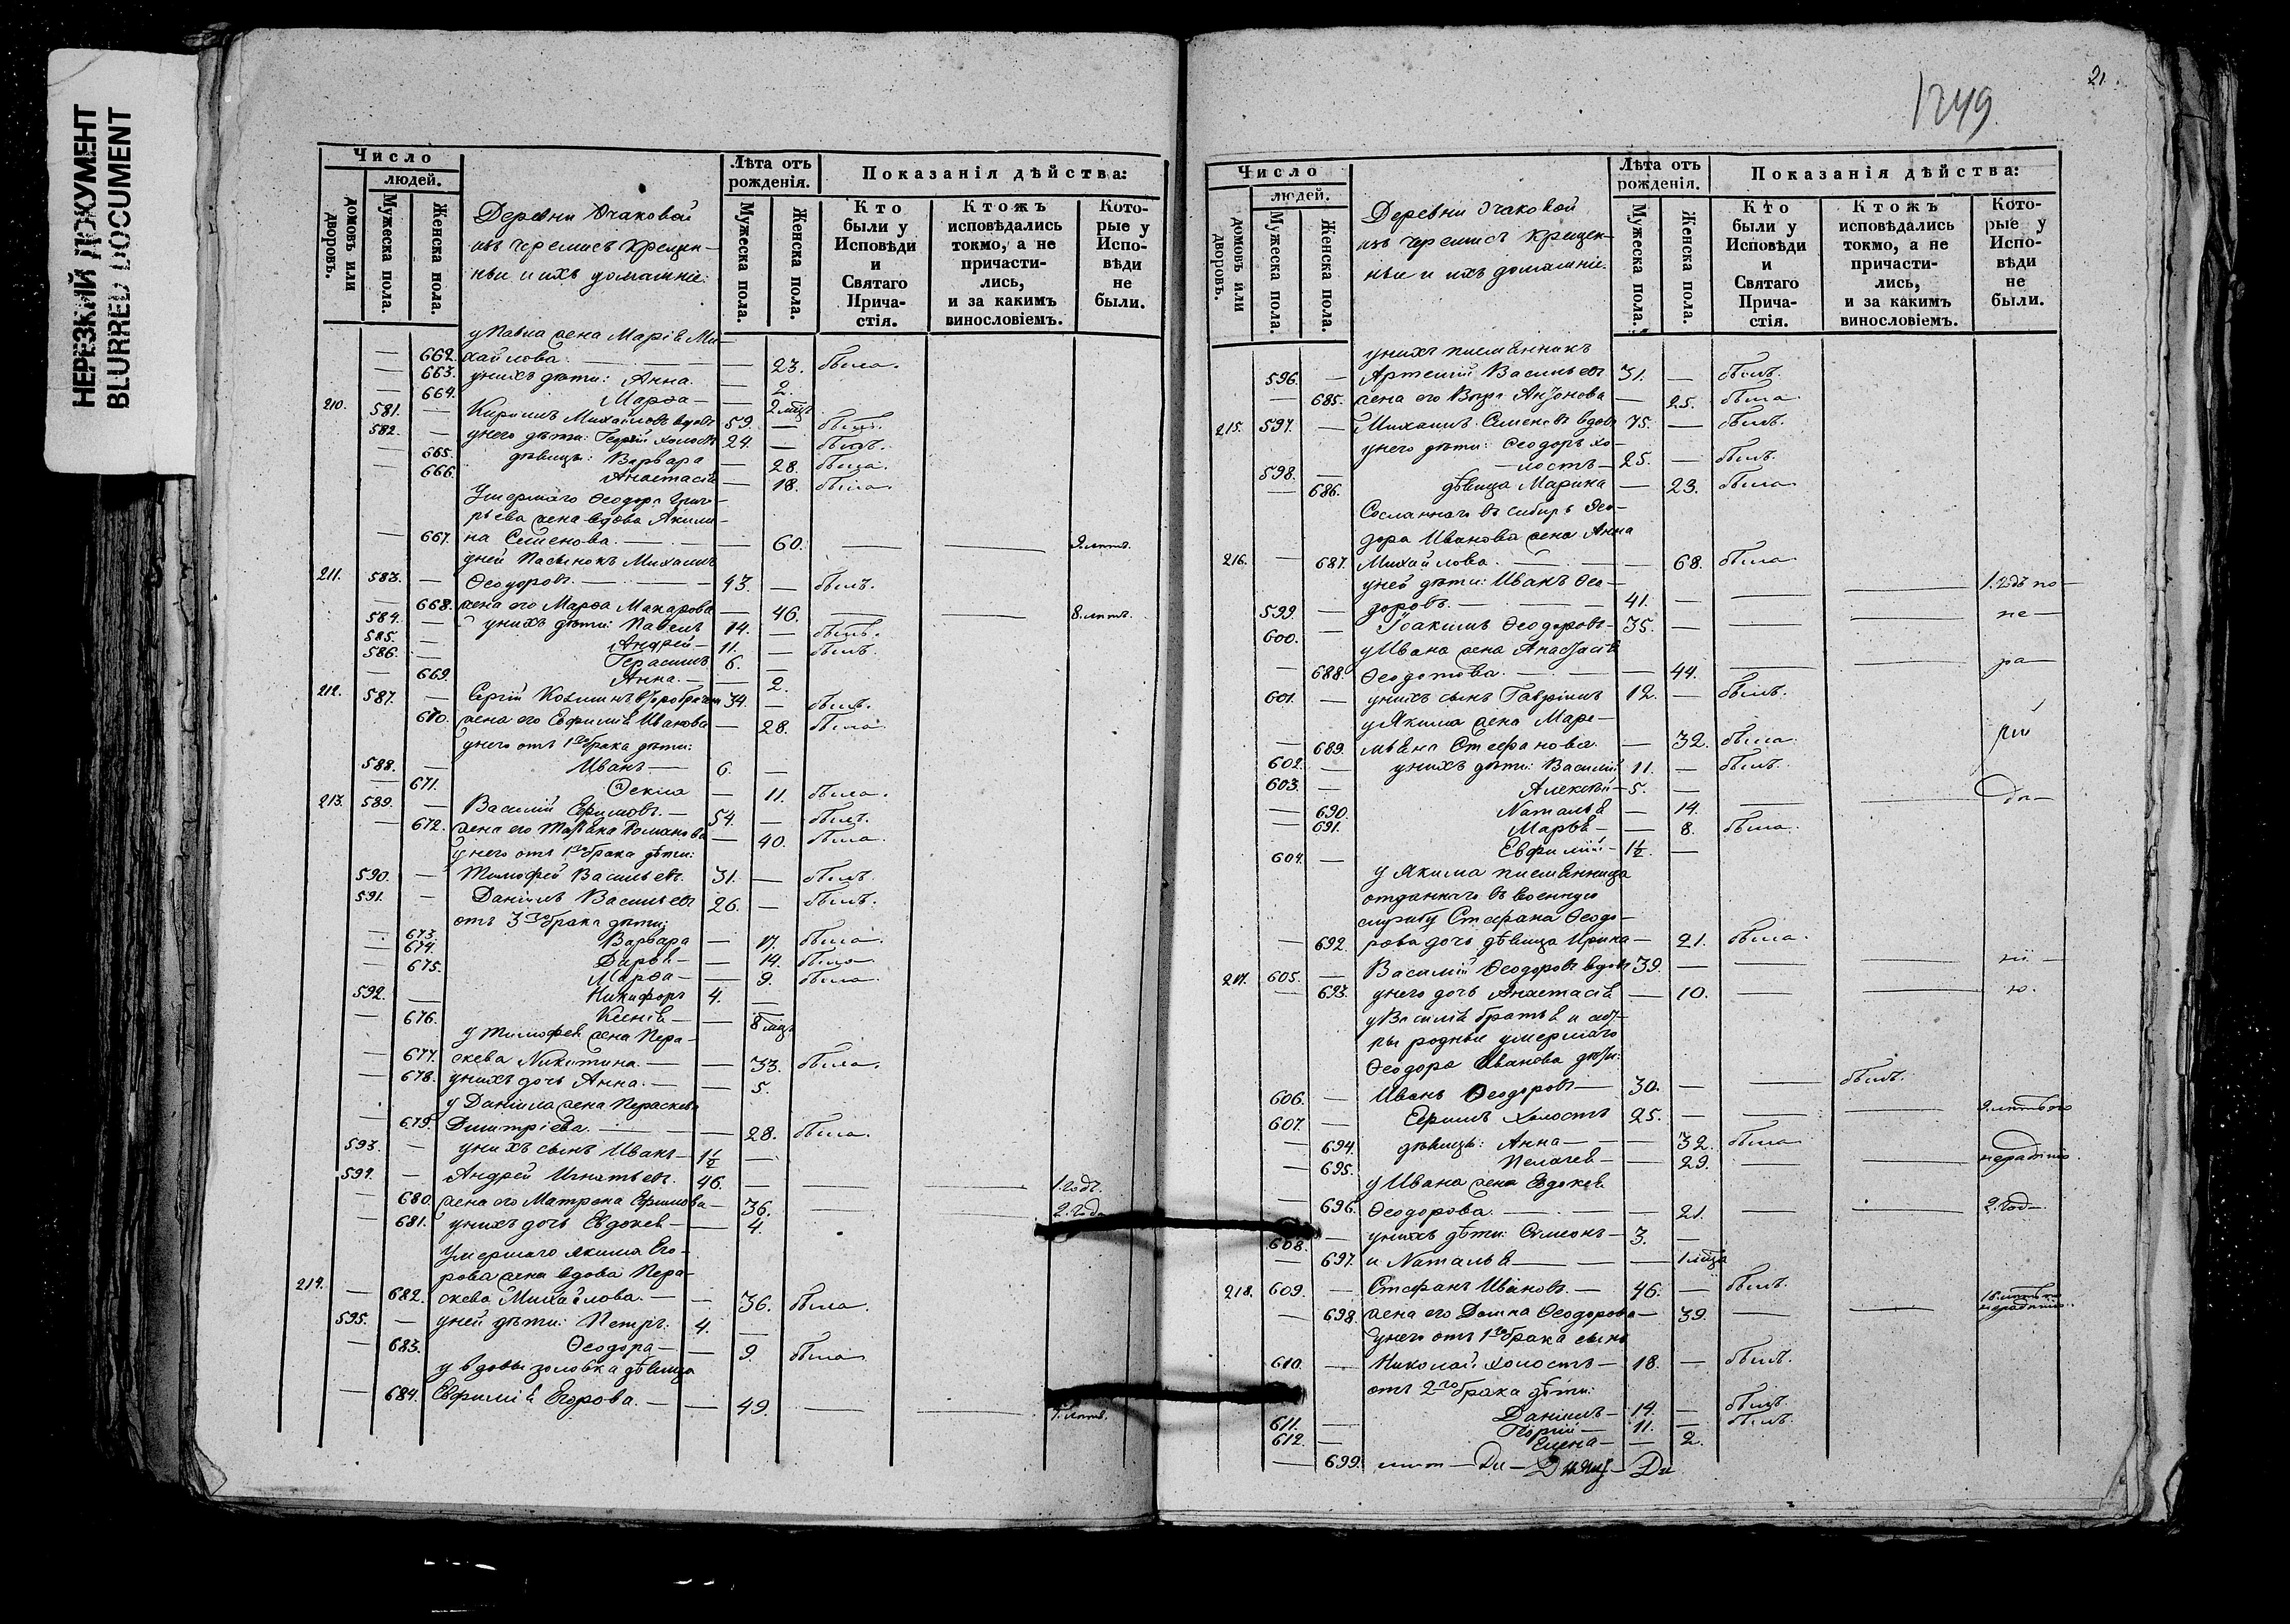 НЕРЕЗКИЙ ДОКУМЕНТ
BLURRED DOCUMENT
Число
людей.
домовъ или дворовъ.
Мужеска пола.
Женска пола.
Деревни Очаковой
изъ черемисъ крещен-
ные и ихъ домашніе:
Лѣта отъ рожденія.
Мужеска пола.
Женска пола.
Показанія дѣйства:
Кто были у Исповѣди и Святаго Прича-стія.
Ктожъ исповѣдались токмо, а не причасти-лись, и за какимъ винословіемъ.
Кото-рые у Испо-вѣди не были.
у Павла жена Марія Ми-
— 662. хайлова — — 23. была.
— 663. у нихъ дѣти: Анна — 2.
— 664. Марѳа — 2 мѣц.
210. 581. — Кирилъ Михайловъ вдовъ 59. — былъ.
582. — у него дѣти: Георгій холостъ 24. — былъ.
— 665. дѣвицы: Варвара — 28. была.
— 666. Анастасія — 18. была.
Умершаго Ѳеодора Григо-
рьева жена вдова Акили-
— 667. на Семенова — — 60. — — 9. лѣтъ.
у ней пасынокъ Михаилъ
211. 583. — Ѳеодоровъ — 43. — былъ.
— 668. жена его Марѳа Макарова — 46. — — 8. лѣтъ.
584. — у нихъ дѣти: Павелъ 14. — былъ.
585. — Андрей — 11. — былъ.
586. — Герасимъ 6. —
— 669. Анна. — — 2.
212. 587. — Сергій Козминъ второбрачен 34. — былъ.
— 670. жена его Евфимія Иванова — 28. была.
у него отъ 1го брака дѣти:
588. — Иванъ — 6. —
— 671. Ѳекла — 11. была.
213. 589. — Василій Ефимовъ. — 54. — былъ.
— 672. жена его Татіана Романова — 40. была.
у него отъ 1го брака дѣти:
590. — Тимофей Васильевъ. 31. — былъ.
591. — Даніилъ Васильевъ 26. — былъ.
отъ 3го брака дѣти:
— 673. Варвара — 17. была.
— 674. Дарья — — 14. была.
— 675. Марѳа — — 9. была.
592. — Никифоръ 4. —
— 676. Ксенія — — 8 мѣц.
у Тимофея жена Пера-
— 677. скева Никитина. — — 33. была.
— 678. у нихъ дочь Анна. — — 5.
у Даніила жена Параскева
— 679. Дмитріева. — — 28. была.
593. — у нихъ сынъ Иванъ — 1½ —
594. — Андрей Игнатьевъ. 46. — — — 1. годъ.
— 680. жена его Матрона Ефимова — 36. — — 2. года
— 681. у нихъ дочь Евдокея — — 4.
Умершаго Якима Его-
рова жена вдова Пера-
214. — 682. скева Михайлова. — — 36. была.
595. — у ней дѣти: Петръ. 4. —
— 683. Ѳеодора — — 9. была
у вдовы золовка дѣвица
— 684. Евфимія Егорова. — — 49. — — лѣтъ.
21.
1249
Число
людей.
домовъ или дворовъ.
Мужеска пола.
Женска пола.
Деревни Очаковой
изъ черемисъ крещен-
ные и ихъ домашніе.
Лѣта отъ рожденія.
Мужеска пола.
Женска пола.
Показанія дѣйства:
Кто были у Исповѣди и Святаго Прича-стія.
Ктожъ исповѣдались токмо, а не причасти-лись, и за какимъ винословіемъ.
Кото-рые у Испо-вѣди не были.
у нихъ племянникъ
596. — Артемій Васильевъ 31. — былъ.
— 685. жена его Вѣра Антонова — 25. была
215. 597. — Михаилъ Семеновъ вдовъ 75. — былъ.
у него дѣти: Ѳеодоръ хо-
598. — лостъ — 25. — былъ.
— 686. дѣвица Марина — 23. была
Сосланнаго въ Сибирь Ѳео-
дора Иванова жена Анна
216. — 687. Михайлова — — 68. была
у ней дѣти: Иванъ Ѳео- 1. годъ по —
599. — доровъ. — 41. — — —
600. — Іоакимъ Ѳеодоровъ — 35. — — — не —
у Ивана жена Анастасія
— 688. Ѳеодотова. — — 44. — — ра —
601. — у нихъ сынъ Гавріилъ 12. — былъ.
у Якима жена Маре-
— 689. мьяна Стефанова. — 32. была.
602. — у нихъ дѣти: Василій 11. — былъ.
603. — Алексѣй — 5. —
— 690. Наталья — 14. — —
— 691. Марья — — 8. была.
604. — Евфимій — 1½ —
у Якима племянница
отданнаго въ военную
службу Стефана Ѳеодо-
— 692. рова дочь дѣвица Ирина — 21. была.
217. 605. — Василій Ѳеодоровъ вдовъ 39. — — — ні —
— 693. у него дочь Анастасія — 10. — — ю.
у Василія братья и сест-
ры родные умершаго
Ѳеодора Иванова дѣти:
606. — Иванъ Ѳеодоровъ — 30. — — былъ.
607. — Ефимъ холостъ 25. — — —
— 694. дѣвицы: Анна — — 32. была
— 695. Пелагея — — 29. — —
у Ивана жена Евдокея
— 696. Ѳеодорова. — — 21. — — 2. год —
608. — у нихъ дѣти: Симеонъ — 3. —
— 697. и Наталья — — 1 мѣца
218. 609. — Стефанъ Ивановъ. — 46. — былъ.
— 698. жена его Домна Ѳеодорова — 39. — —
у него отъ 1го брака сынъ
610. — Николай холостъ — 18. — былъ.
отъ 2го брака дѣти:
611. — Даніилъ — 14. — былъ.
612. — Георгій — 11. — былъ.
— 699. Елена — — 2.